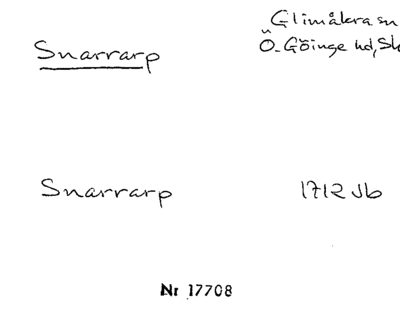 Glimåkra sn
Snarrarp
Ö. Göinge hd, Sk
Snarrarp
1712 Jb
Nr 17708